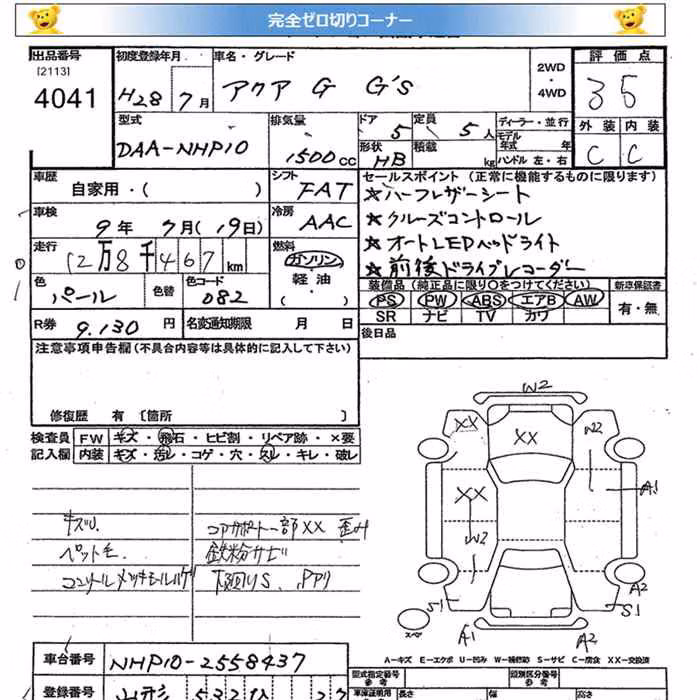 完全ゼロ切りコーナー
出品番号
[2113]
4041
初度登録年月
H28 7月
車名・グレード
アクア G G's
2WD
・
4WD
評価点
35
外装 内装
C C
型式
DAA-NHP10
排気量
1500cc
ドア
5
定員
5人
形状
HB
積載
kg
ディーラー・並行
モデル
年式 年
ハンドル 左・右
車歴
自家用・( )
シフト
FAT
車検
9年 7月(19日)
冷房
AAC
走行
12万8千467km
燃料
ガソリン
軽油
・
色
パール
色替
色コード
082
R券
9,130円
名変通知期限 月 日
セールスポイント(正常に機能するものに限ります)
★ハーフレザーシート
★クルーズコントロール
★オートLEDヘッドライト
★前後ドライブレコーダー
装備品(純正品に限り○をつけてください)
PS PW ABS エアB AW
SR ナビ TV カワ
新車保証書
有・無
後日品
注意事項申告欄(不具合内容等は具体的に記入して下さい)
修復歴 有 〔箇所 〕
検査員
記入欄
FW キズ・飛石・ヒビ割・リペア跡・×要
内装 キズ・汚レ・コゲ・穴・スレ・キレ・破レ
キズU
ペット毛
コアサポート一部XX 歪み
鉄粉サビ
下回りS、Pアリ
W2
XX
XX
W2
A1
XX
W2
S1
A2
S1
A1
A2
スペア
A-キズ E-エクボ U-凹み W-補修跡 S-サビ C-腐食 XX-交換済
車台番号
NHP10-2558437
登録番号
型式指定番号
参考
類別区分番号
参考
車庫証明用
長さ
幅
高さ